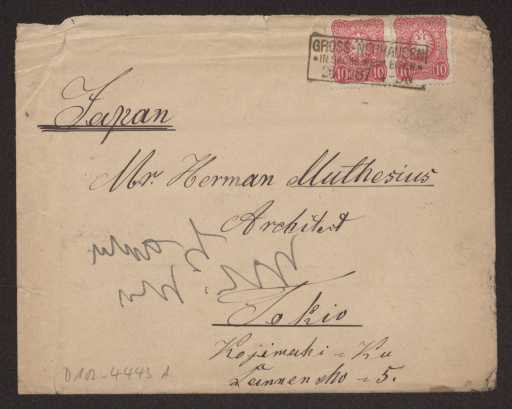 GROSS-NEUHAUSEN
10 10 10 10
Japan
Mr. Herman Muthesius
Architect
Tokio
Kojimahi = Ku
Sannensho = 5.
D 102-4443 A